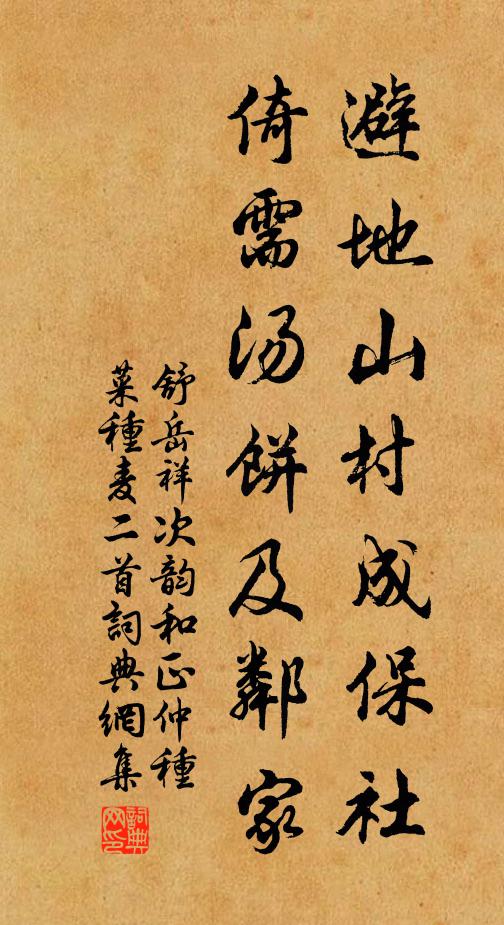 避地山村成保社
倚需汤餅及鄰家
舒岳祥次韵和正仲種
菜種麦二首詞典網集
詞典网印